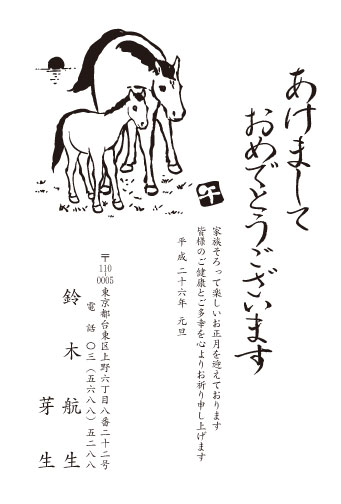 あけまして
おめでとうございます
午
家族そろって楽しいお正月を迎えております
皆様のご健康とご多幸を心よりお祈り申し上げます
平成二十六年 元旦
〒110-0005
東京都台東区上野六丁目八番二十二号
電話 〇三(五六八八)五二八八
鈴木 航生
芽生